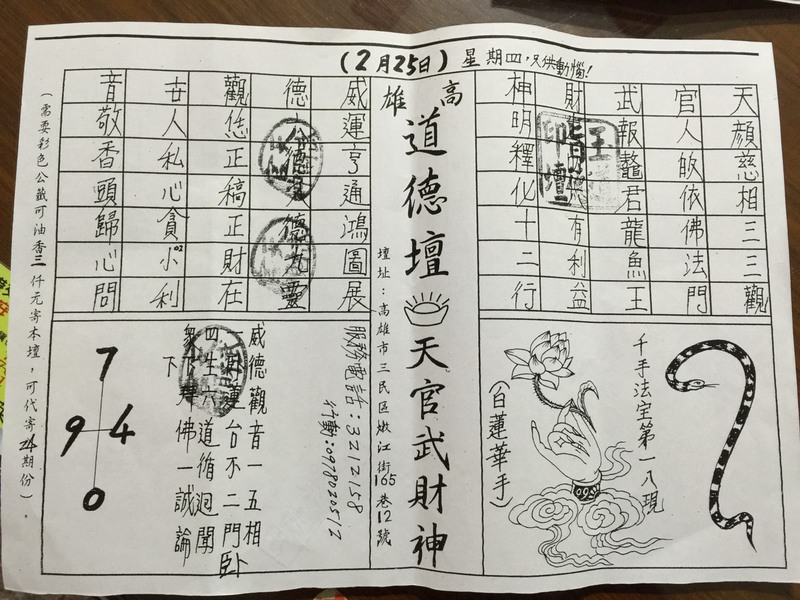 (2月25日)星期四,只供動惱!
天顏慈相三三觀
官人皈依佛法門
武報鼇君龍魚王
財 有利益
神明釋化十二行
高雄
道德壇天官武財神
壇址:高雄市三民區嫩江街165巷12號
威運亨通鴻圖展
德 德 靈
觀恁正稿正財在
世人私心貪小利
音敬香頭歸心問
千手法室第一八現
(白蓮華手)
服務電話:3212158
行動:0978020512
威德觀音一五相
一 蓮台不二門卧
四生六道循迴聞
眾 拜佛一誠論
下
7
9 4
0
(需要彩色公籤可油香三仟元寄本壇,可代寄24期份)。